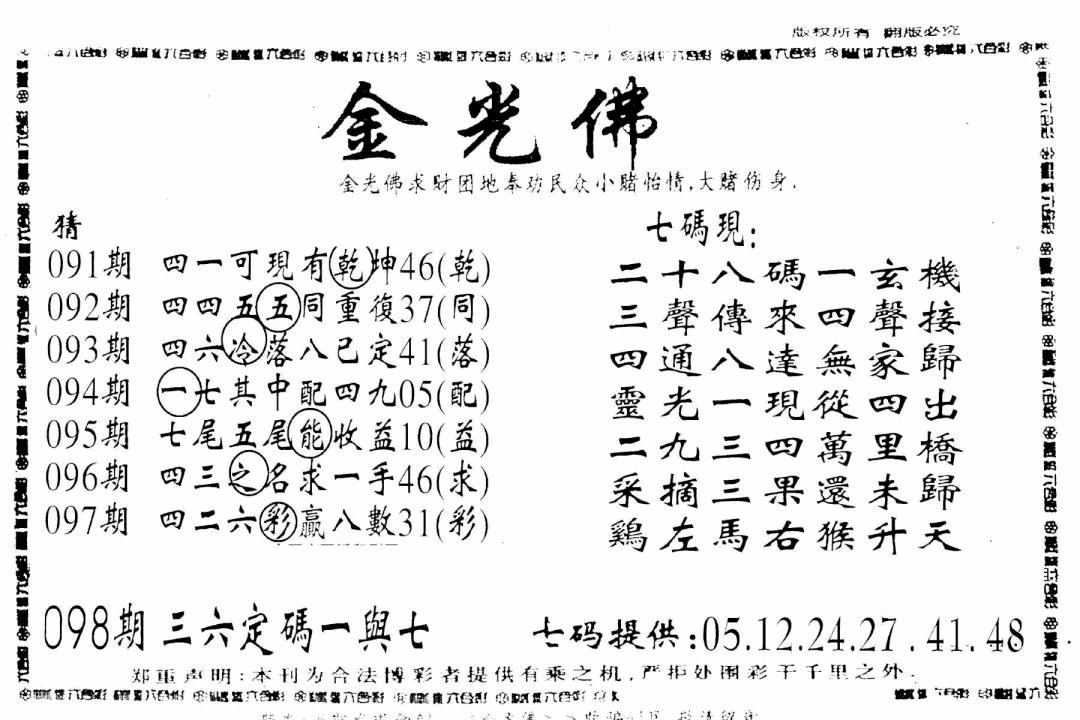 版权所有 翻版必究
金光佛
金光佛求财团地奉劝民众小赌怡情,大赌伤身.
猜
091期 四一可現有乾坤46(乾)
092期 四四五五同重復37(同)
093期 四六冷落八已定41(落)
094期 一七其中配四九05(配)
095期 七尾五尾能收益10(益)
096期 四三之名求一手46(求)
097期 四二六彩贏八數31(彩)
七碼現:
二十八碼一玄機
三聲傳來四聲接
四通八達無家歸
靈光一現從四出
二九三四萬里橋
采摘三果還未歸
鷄左馬右猴升天
098期 三六定碼一與七
七码提供:05.12.24.27.41.48
郑重声明:本刊为合法博彩者提供有乘之机,严拒处围彩于千里之外.